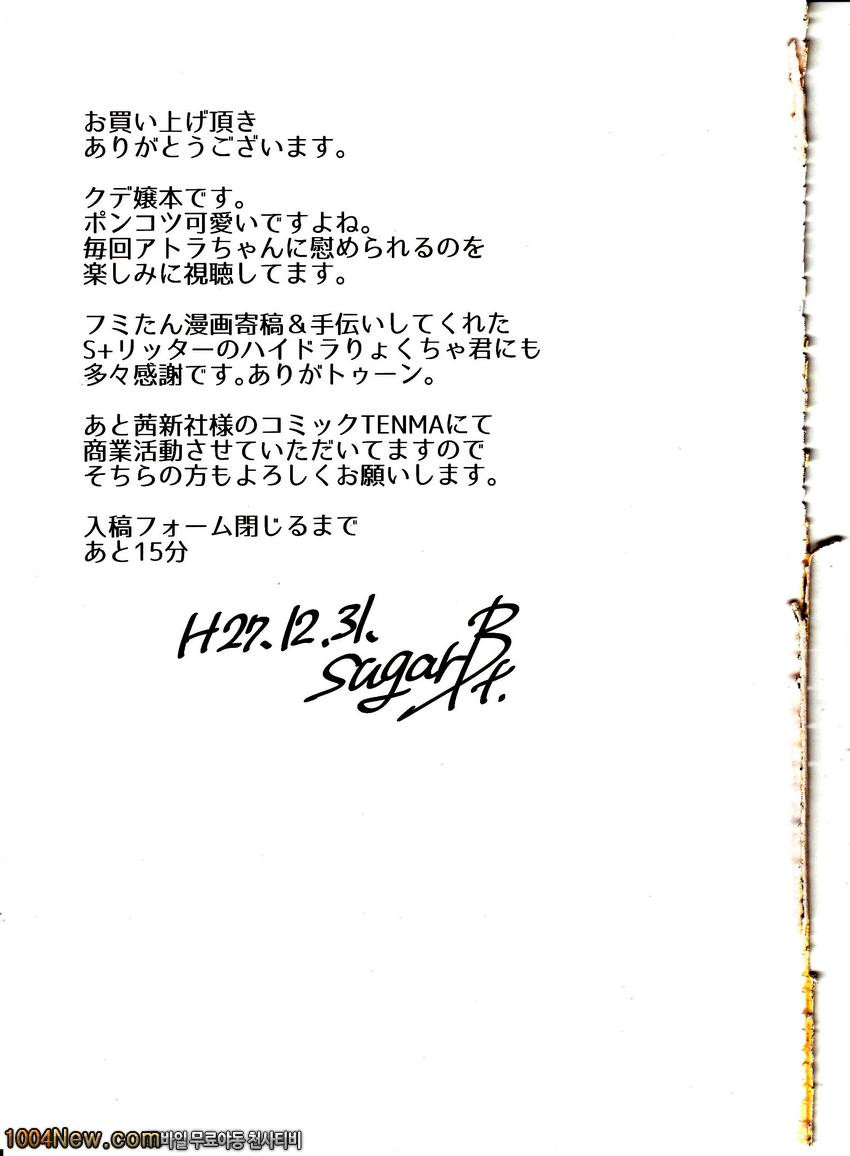 お買い上げ頂き
ありがとうございます。
クデ嬢本です。
ポンコツ可愛いですよね。
毎回アトラちゃんに慰められるのを
楽しみに視聴してます。
フミたん漫画寄稿＆手伝いしてくれた
S+リッターのハイドラりょくちゃ君にも
多々感謝です。ありがトゥーン。
あと茜新社様のコミックTENMAにて
商業活動させていただいてますので
そちらの方もよろしくお願いします。
入稿フォーム閉じるまで
あと15分
H27.12.31.
sugarBt.
1004New.com바일 무료야동 천사티비